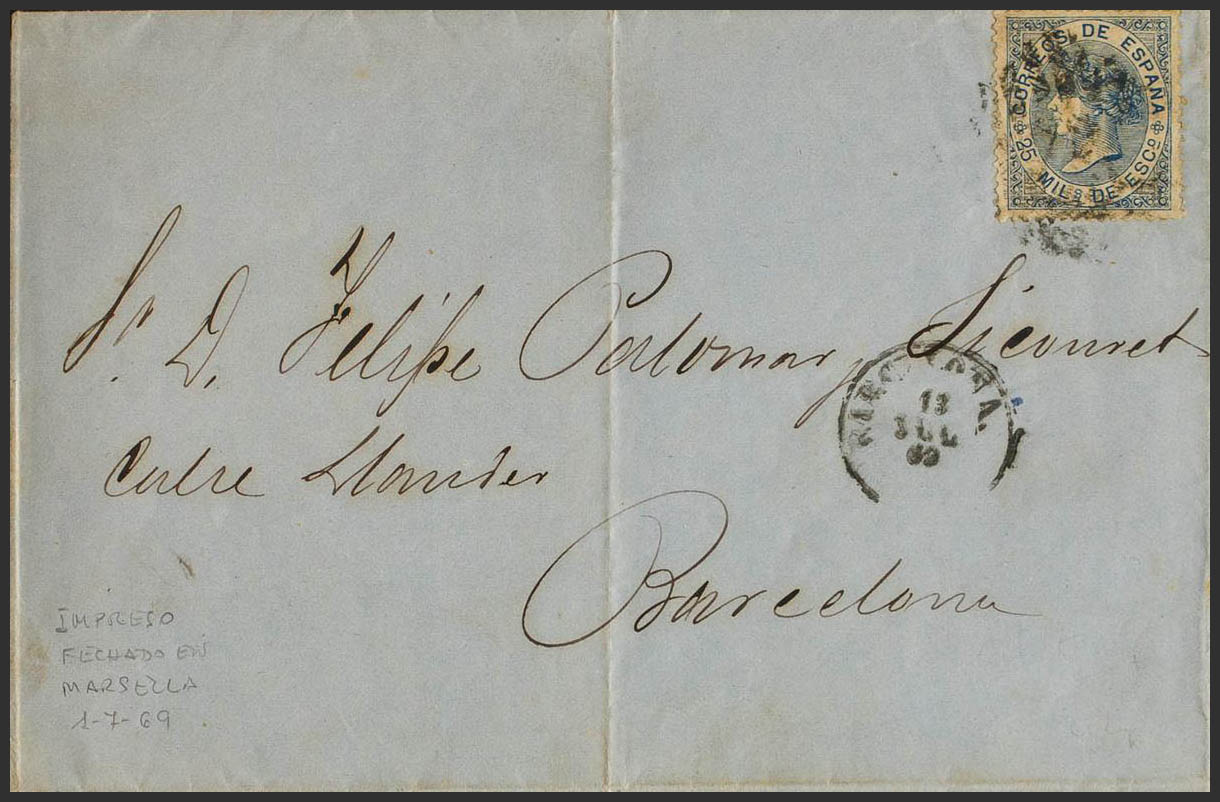 CORREOS DE ESPAÑA
25 MILS DE ESCO
Sr. D. Felipe Palomar, Siconret
BARCELONA.
13
JUL
69
Calle Llauder
Barcelona
IMPRESO
FECHADO EN
MARSELLA
1-7-69